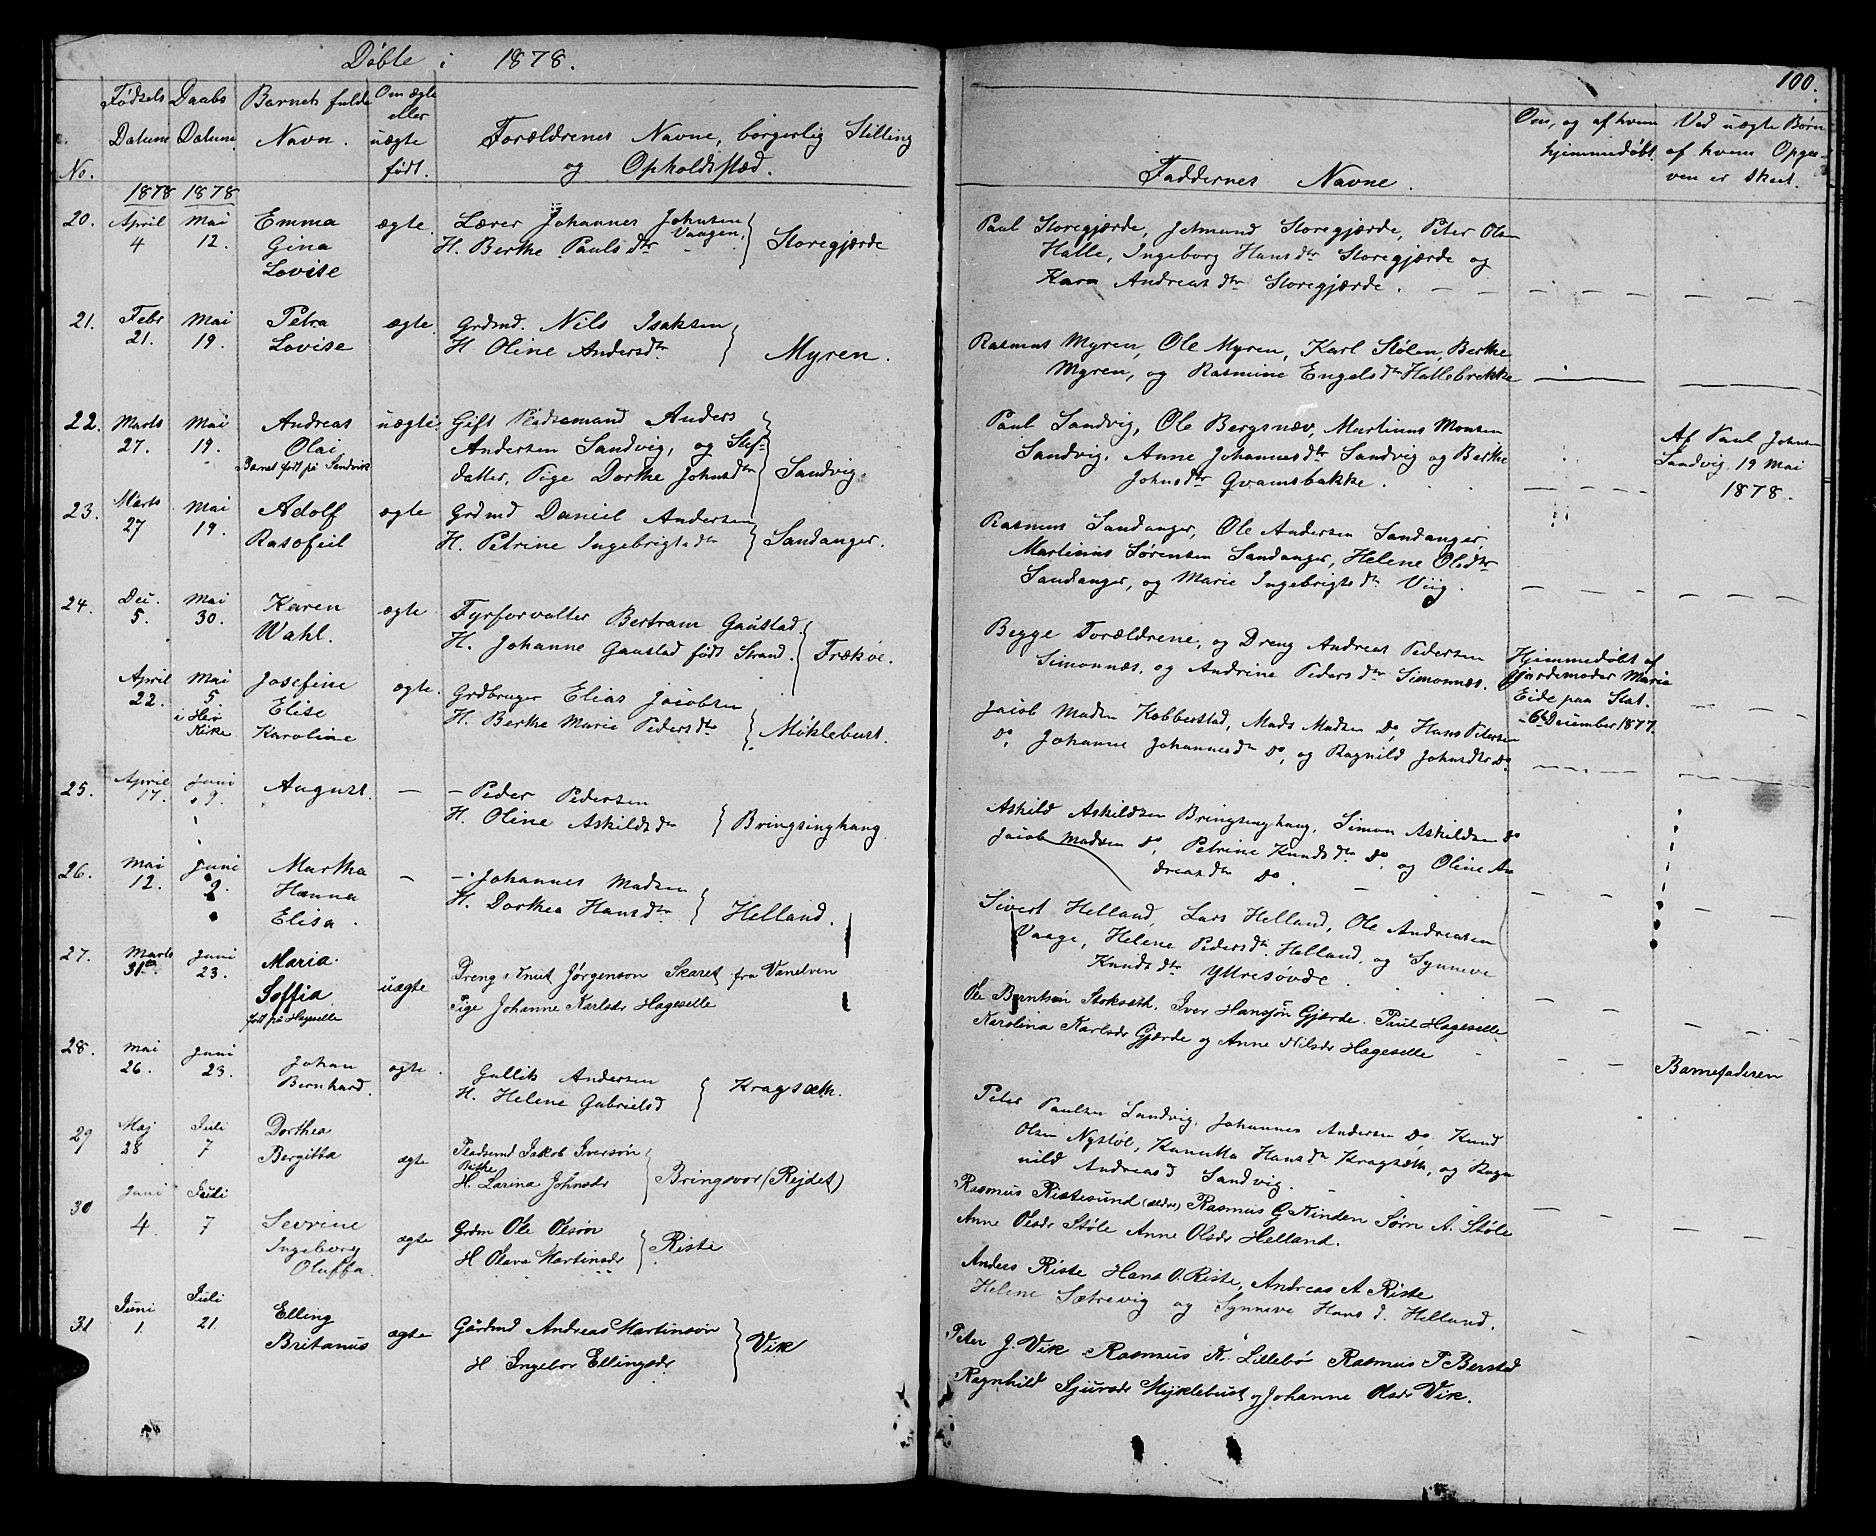 Døbte i 1878.
100.
No.
Fødsels Datum
Daabs Datum
Barnets fulde Navn.
Om ægte eller uægte født.
Forældrenes Navne, borgerlig Stilling
og Opholdssted.
Faddernes Navne.
Om, og af hvem hjemmedøbt.
Ved uægte Børn af hvem Opgaven er skeet.
1878 1878
20. April 4 Mai 12. Emma Gina Lovise ægte.
Lærer Johannes Johnsen Vaagen,
H. Berthe Pauls dtr } Storegjærde
Paul Storegjærde, Jetmund Storegjærde, Peter Olsen
Halle, Ingeborg Hans dtr Storegjærde og
Kara Andreas dtr Storegjærde.
21. Febr 21. Mai 19. Petra Lovise ægte.
Grdmd. Nils Isaksen
H Oline Anders dtr } Myren.
Rasmus Myren, Ole Myren, Karl Stølen, Berthe
Myren, og Rasmine Engels dtr Hallebrekke
22. Marts 27. Mai 19. Andreas Olai uægte.
Barnet født på Sandvik
Gift Pladsemand Anders
Andersen Sandvig, og Stef-
datter, Pige Dorthe Johns dtr } Sandvig.
Paul Sandvig, Ole Bergsnæv, Martinus Monsen
Sandvig. Anne Johannes dtr Sandvig og Berthe
Johns dtr Gvamsbakke.
Af Paul Johnsen
Sandvig 19 Mai
1878.
23. Marts 27 Mai 19. Adolf Rasofeil ægte
Grdmd Daniel Andersen
H. Petrine Ingebrigts dtr } Sandanger.
Rasmus Sandanger, Ole Andersen Sandanger,
Martinus Sørensen Sandanger, Helene Ols dtr
Sandanger, og Marie Ingebrigts dtr Viig.
24. Dec. 5. Mai 30. Karen Wahl. ægte.
Fyrforvalter Bertram Gaustad
H. Johanne Gaustad født Strand. } Frækøe.
Begge Forældrene, og Dreng Andreas Pedersen
Simonnæs. og Andrine Peders dtr Simonnæs.
Hjemmedøbt af
Gjordemoder Marie
Eide paa Stat.
6te December 1877.
April 22. Mai 5 i Herø Kirke Josefine Elise Karoline ægte.
Grdbruger Elias Jacobsen
H. Berthe Marie Peders dtr } Møklebust.
Jacob Madsen Kobberstad, Mads Madsen Do, Hans Petersen
Do, Johanne Johannes dtr Do, og Ragnild Johns dtr Do
25. April 17. Juni 9. August. —
- Peder Pedersen
H. Oline Askilds dtr } Bringsinghaug.
Askild Askildsen Bringsinghaug, Simon Askildsen do
Jacob Madsen Do, Petrine Knuds dtr Do, og Oline An
dreas dtr Do.
26. Mai 12. Juni 2. Martha Hanna Elisa. —
- Johannes Madsen
H. Dorthea Hans dtr } Helland.
Sivert Helland, Lars Helland, Ole Andreasen
Vaage, Helene Peders dtr Helland, og Synneve
Knuds dtr Yttresøvde.
27. Marts 31te Juni 23. Maria Soffia uægte
født på Hageselle
Dreng Knut Jørgenson Skaret fra Vanelven
Pige Johanne Karlsdr Hageselle
Ole Berntson Stoksæth. Iver Hanssøn Gjærde. Paul Hageselle
Karolina Karlsdr Gjærde og Anne Nilsdr Hageselle
Barnefaderen
28. Mai 26. Juni 23. Johan Bernhard. ægte.
Gullik Andersen
H. Helene Gabrielsd } Kragsæth.
Peter Paulsen Sandvig, Johannes Andersen Do, Knud
Olsen Nystøl, Kanutta Hans dr Kragsæth, og Ragn
nild Andreas d Sandvig.
29 Maj 28 Juli 7 Dorthea Bergitta ægte
Pladsemd Jakob Iversøn
Riste
H. Larina Johnsdr } Bringsvor (Rejdet)
Rasmus Ristesund (ældre) Rasmus G Ninden Sørn A. Støle
Anne Olsdr Støle Anne Olsdr Helland.
30 Juni 4 Juli 7 Sevrine Ingeborg Oluffa. ægte
Grdm Ole Olsøn
H Olava Martinsdr } Riste
Anders Riste Hans O. Riste, Andreas A Riste
Helene Sætrevig og Synneve Hans d. Helland.
31 Juni 1. Juli 21. Elling Britanus ægte
Gårdmd Andreas Martinsøn
H Ingebor Ellingsdr } Vik
Peter J. Vik Rasmus K. Lillebø Rasmus P Berstad
Ragnhild Sjursdr Myklebust og Johanne Olsdr Vik.